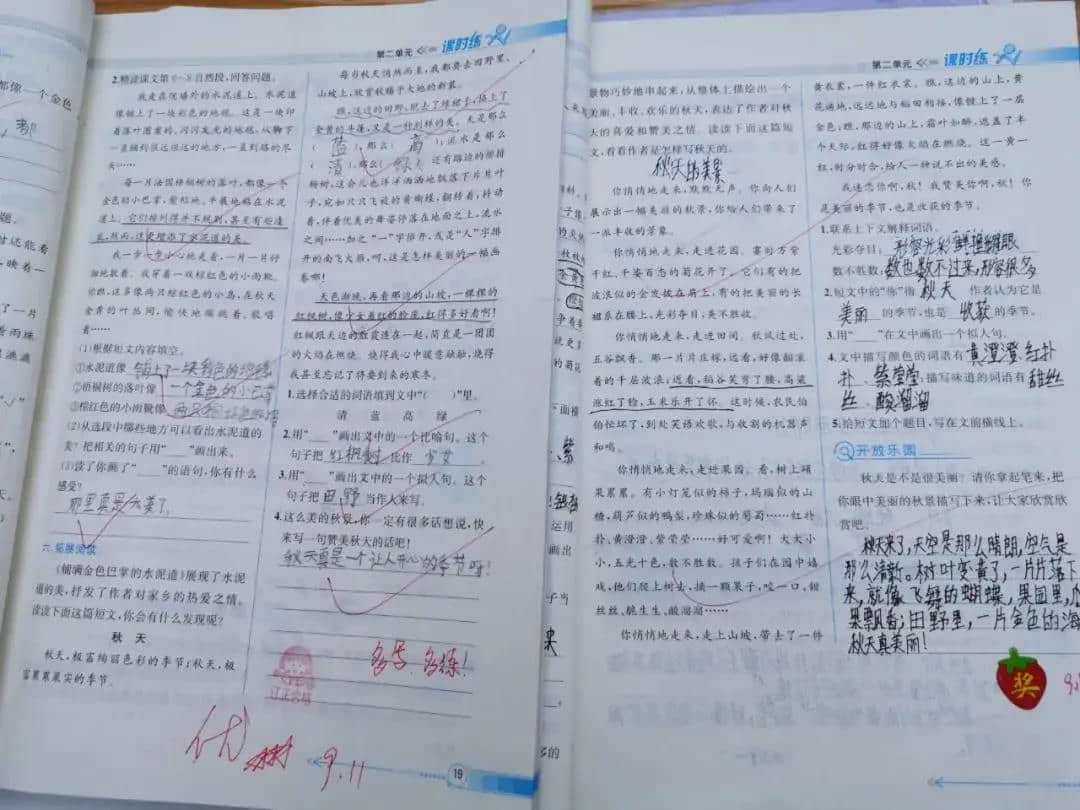 第二单元 课时练
2.精读课文第6~8自然段,回答问题。
我走在院墙外的水泥道上。水泥道
像铺上了一块彩色的地毯。这是一块印
着落叶图案的、闪闪发光的地毯,从脚下
一直铺到很远很远的地方,一直到路的尽
头……
每一片法国梧桐树的落叶,都像一个
金色的小巴掌,熨帖地、平展地粘在水泥
道上。它们排列得并不规则,甚至有些凌
乱,然而,这更增添了水泥道的美。
我一步一步小心地走着,一片一片仔
细地数着。我穿着一双棕红色的小雨靴。
你瞧,这多像两只棕红色的小鸟,在秋天
金黄的叶丛间,愉快地蹦跳着、歌唱
着……
(1)根据短文内容填空。
①水泥道像 铺上了一块彩色的地毯
②梧桐树的落叶像 一个金色的小巴掌
③棕红色的小雨靴像 两只棕红色的小鸟
(2)从选段中哪些地方可以看出水泥道的
美?把相关的句子用“ ”画出来。
(3)读了你画了“ ”的语句,你有什么
感受?
那里真是太美了。
六、拓展阅读
《铺满金色巴掌的水泥道》展现了水泥
道的美,抒发了作者对家乡的热爱之情。
读读下面这篇短文,你会有什么发现呢?
秋 天
秋天,极富绚丽色彩的季节;秋天,极
富累累果实的季节。
每当秋天悄然而至,我都要去田野里、
山坡上,欣赏收藏于大地的新装。
瞧,这边的田野,脱去了绿裙子,换上了
金黄的斗篷,又是一种别样的美。天是那么
(蓝),那么(高);泉水是那么
(清),那么(绿)。还有路边的排排
梧树,这会儿也洋洋洒洒地飘落下片片叶
子,宛如只只飞旋的黄蝴蝶,翻转着,抖动
着,伴着优美的舞姿停落在地面之上,流水
之间……加之“一”字排开,或是“人”字排
开的南飞大雁,呵,这是怎样美丽的一幅画
卷啊!
天色渐晚,再看那边的山坡,一棵棵的
红枫树,像少女羞红的脸庞,红得多好看啊!
红枫跟天边的红霞连在一起,简直是一团团
的大焰在燃烧。烧得我心中暖意融融,烧得
我甚至忘记了将要到来的寒冬。
1.选择合适的词语填到文中“( )”里。
清 蓝 高 绿
2.用“ ”画出文中的一个比喻句。这个
句子把 红枫树 比作 少女 。
3.用“ ”画出文中的一个拟人句。这个
句子把 田野 当作人来写。
4.这么美的秋景,你一定有很多话想说,快
来写一句赞美秋天的话吧!
秋天真是一个让人开心的季节呀!
多读,多练!
订正合格
优
9.11
19
第二单元 课时练
景物巧妙地串起来,从整体上描绘出一个
美丽、丰收、欢喜的秋天,表达了作者对秋
天的喜爱和赞美之情。读读下面这篇短
文,看看作者是怎样写秋天的。
秋天的美景
你悄悄地走来,默默无声。你向人们
展示出一幅美丽的秋景,你给人们带来了
一派丰收的景象。
你悄悄地走来,走进花园。霎时万紫
千红,千姿百态的菊花开了。它们有的把
波浪似的金发披在肩上,有的把美丽的长
裙系在腰上,光彩夺目,美不胜收。
你悄悄地走来,走进田间。秋风过处,
五谷飘香。那一片片庄稼,远看,好像翻滚
着的千层波浪;近看,稻谷笑弯了腰,高粱
涨红了脸,玉米乐开了怀。这时候,农民伯
伯忙坏了,到处笑语欢歌,与收割的机器声
和鸣。
你悄悄地走来,走进果园。看,树上硕
果累累。有小灯笼似的柿子,玛瑙似的山
楂,葫芦似的鸭梨,珍珠似的葡萄……红扑
扑,黄澄澄,紫莹莹……好可爱啊!大大小
小,五光十色,数不胜数。孩子们在园中嬉
戏,他们爬上树去,摘一颗果子,咬一口,甜
丝丝,脆生生,酸溜溜……
你悄悄地走来,走上山坡,带去了一件
黄衣裳,一件红衣裳。瞧,这边的山上,黄
花遍地,远远地与稻田相接,像镀上了一层
金色;瞧,那边的山上,霜叶如醉,遮盖了半
个天际,红得好像大焰在燃烧。这一黄一
红,时分时合,给人一种说不出的美感。
我迷恋你啊,秋!我赞美你啊,秋!你
是美丽的季节,也是收获的季节。
1.联系上下文解释词语。
光彩夺目:形容光彩鲜艳耀眼
数不胜数:数也数不过来,形容很多
2.短文中的“你”指 秋天 作者认为它是
美丽 的季节,也是 收获 的季节。
3.用“ ”在文中画出一个拟人句。
4.文中描写颜色的词语有 黄澄澄、红扑
扑、紫莹莹,描写味道的词语有 甜丝
丝、酸溜溜
5.给短文加个题目,写在文前横线上。
开放乐园
秋天是不是很美丽?请你拿起笔来,把
你眼中美丽的秋景描写下来,让大家欣赏欣
赏吧。
秋天来了,天空是那么晴朗,空气是
那么清新。树叶变黄了,一片片落下
来,就像飞舞的蝴蝶,果园里,水
果飘香;田野里,一片金色的海
秋天真美丽!
奖